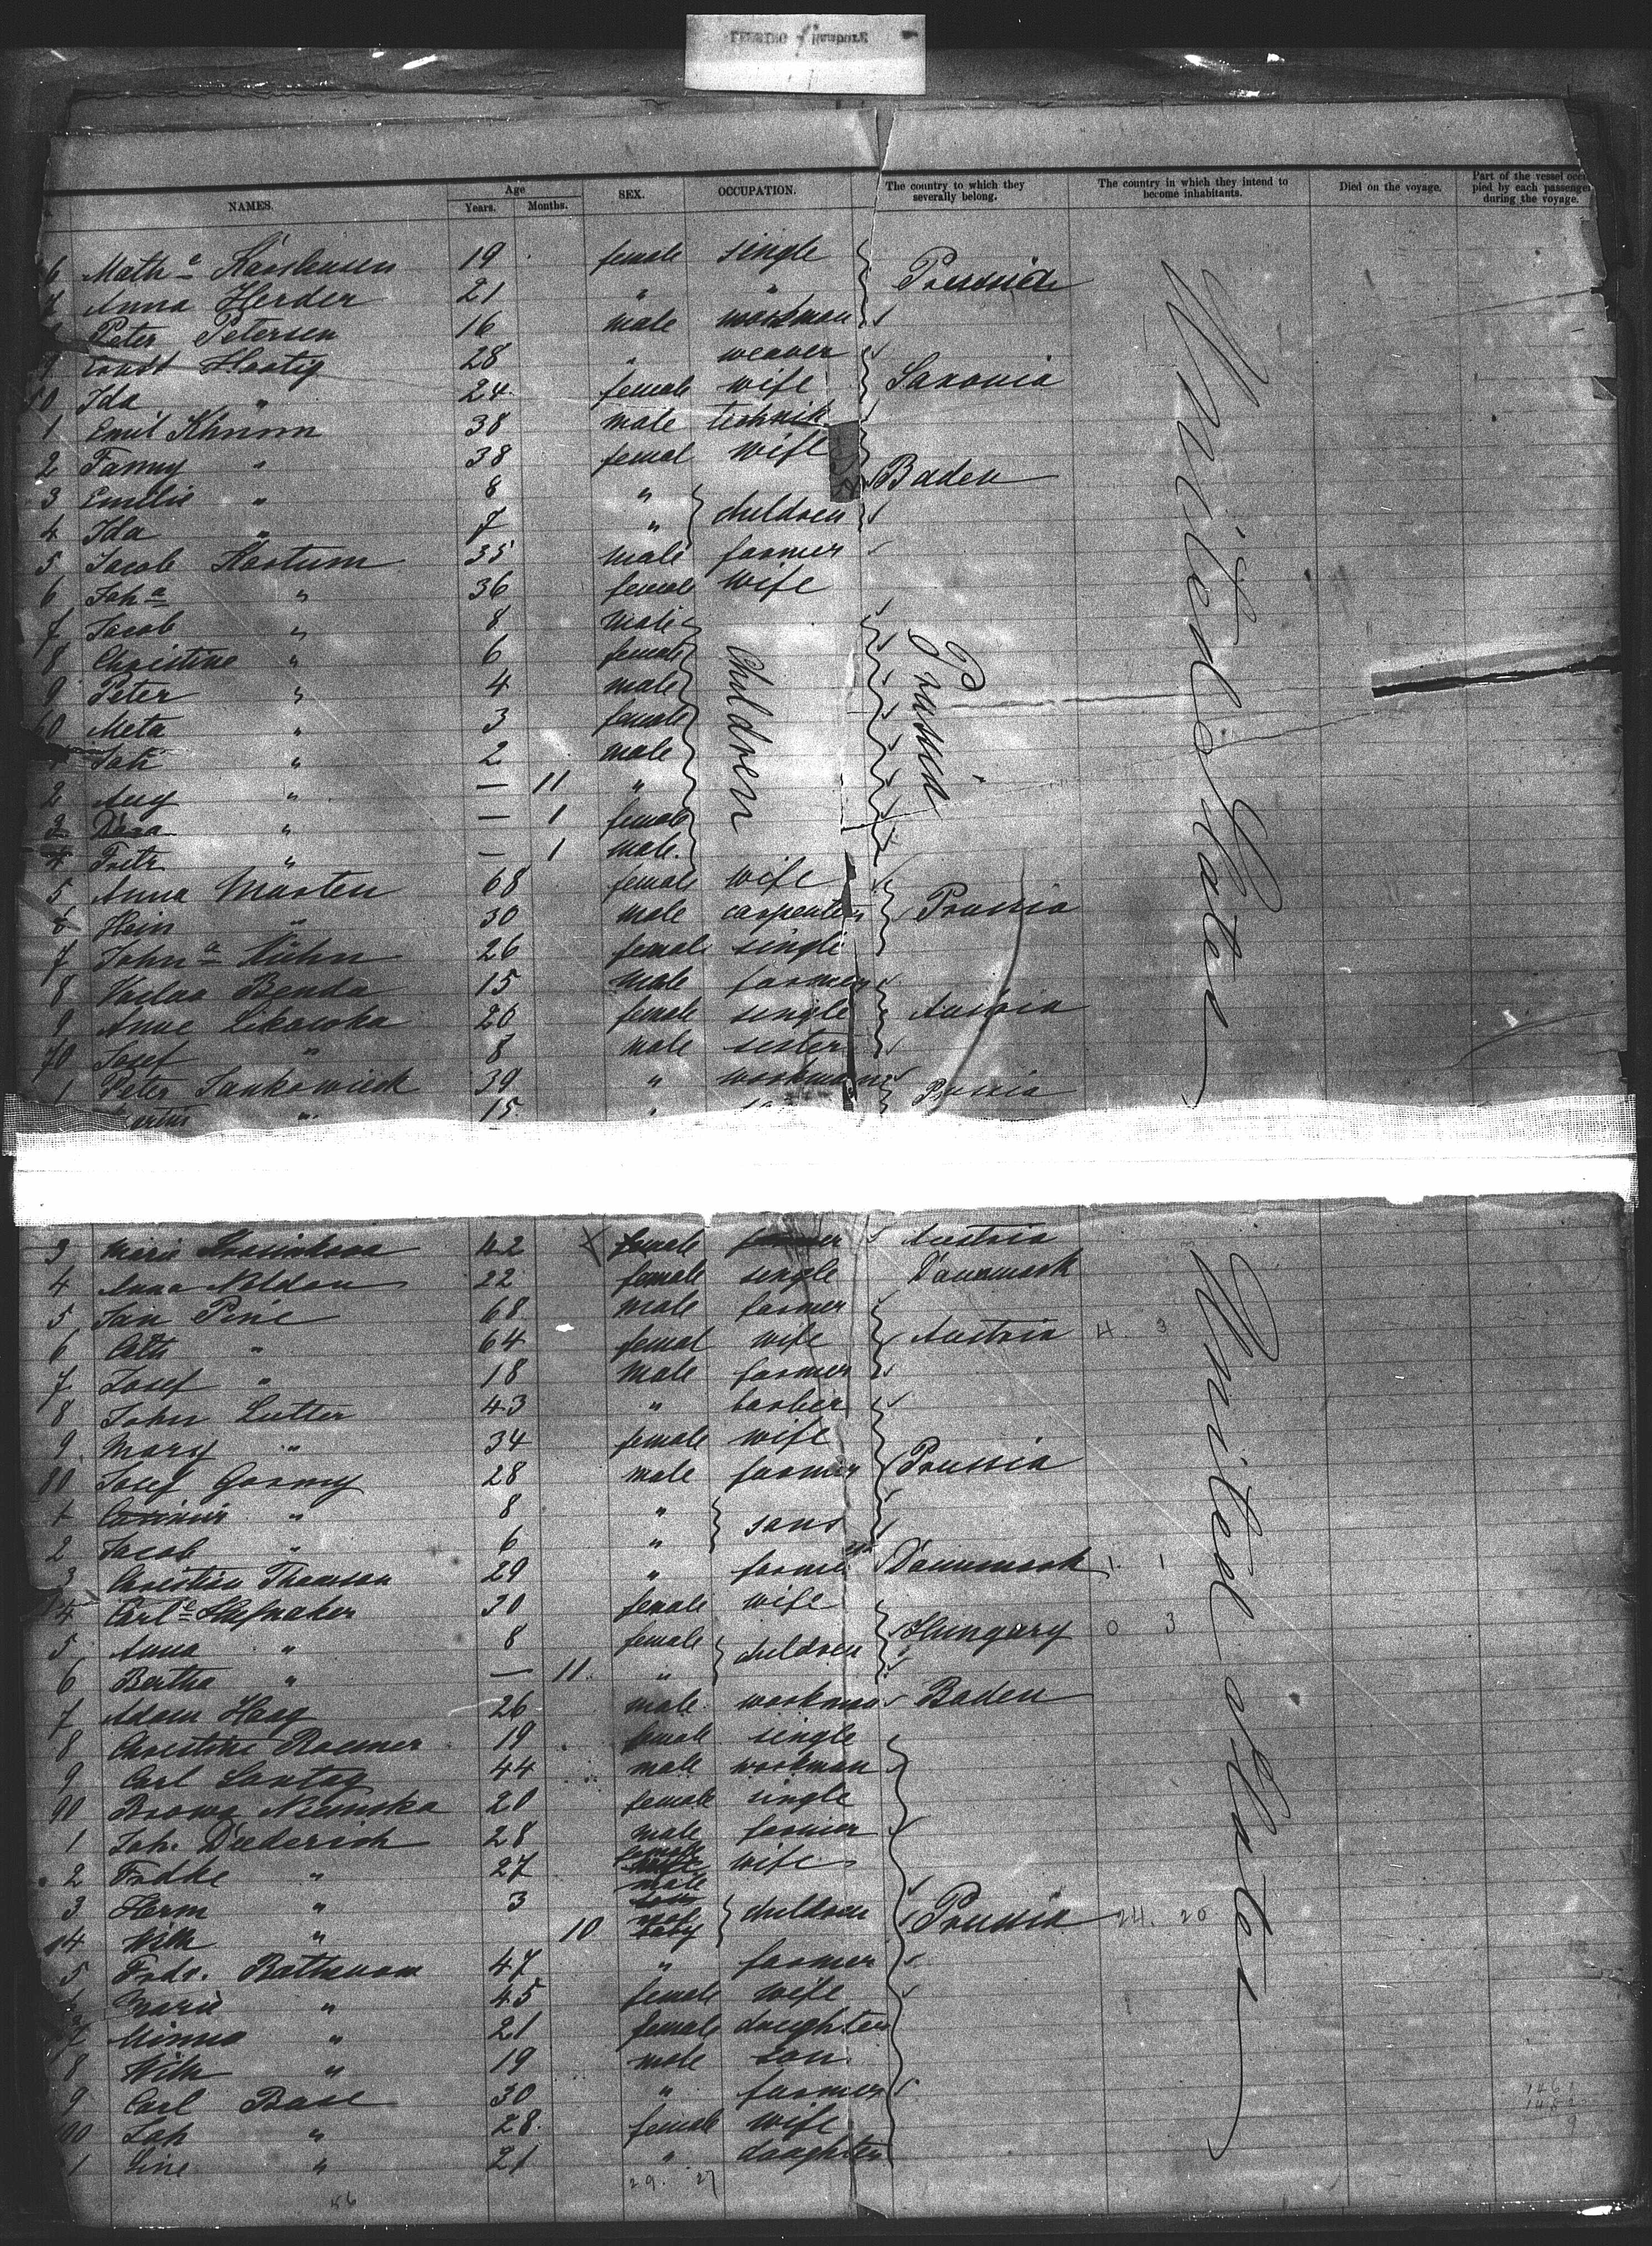 NAMES. Age Years. Months. SEX. OCCUPATION. The country to which they severally belong. The country in which they intend to become inhabitants. Died on the voyage. Part of the vessel occupied by each passenger during the voyage.
6 Math<sup>a</sup> 19 female single
7 Anna Herder 21 " " Prussia
Peter Petersen 16 male workman
9 Ernst Hartig 28 " weaver
50 Ida " 24 female wife Saxonia
1 Emil Khnm 38 male technik
2 Fanny " 38 femal wife Baden
3 Emilie " 8 "
4 Ida " 7 " children
5 Jacob Hartum 35 male farmer
6 Joh<sup>a</sup> " 36 female wife
7 Jacob " 8 male
8 Christine " 6 female children Prussia
9 Peter " 4 male
60 Meta " 3 female
Joh " 2 male
2 Aug " — 11 "
3 Dora " — 1 female
4 Fritz " — 1 male
5 Anna Marten 68 female wife
6 Hein " 30 male carpenter Prussia
7 John<sup>a</sup> Kühn 26 female single
8 Vaclav Benda 15 male farmer
9 Anne 20 female single Austria
70 Josef " 8 male sister
1 Peter Jankowieck 39 " workman Prussia
" 15 "
United States
3 Marie 42 female farmer Austria
4 Anna Nolden 22 female single Dannmark
5 Jan Pine 68 male farmer
6 Cath " 64 femal wife Austria 4. 3
7 Josef " 18 male farmer
8 John Lutter 43 " barber
9 Mary " 34 female wife
80 Josef Gormy 28 male farmer Prussia
1 Casimir " 8 "
2 Jacob " 6 " sons
3 Christian Thomson 29 " farmer Dannmark 1. 1
4 Carl<sup>e</sup> Hufnaker 30 female wife
5 Anna " 8 female children Hungary 0 3
6 Bertha " — 11 "
7 Adam Haag 26 male workman Baden
8 Christine Roemer 19 female single
9 Carl Santag 44 male workman
90 Niemska 20 female single
1 Joh. Diederich 28 male farmer
2 Fredke " 27 female wife
3 Herm " 3 male children
4 Wilh " 10 male Prussia 24. 20
5 Fredr. Rathmann 47 " farmer
Marie " 45 female wife
7 Minna " 21 female daughter
8 Wilh " 19 male son
9 Carl Base 30 " farmer
00 Joh " 28 female wife
1 Line " 21 " daughter
United States
29. 27
56